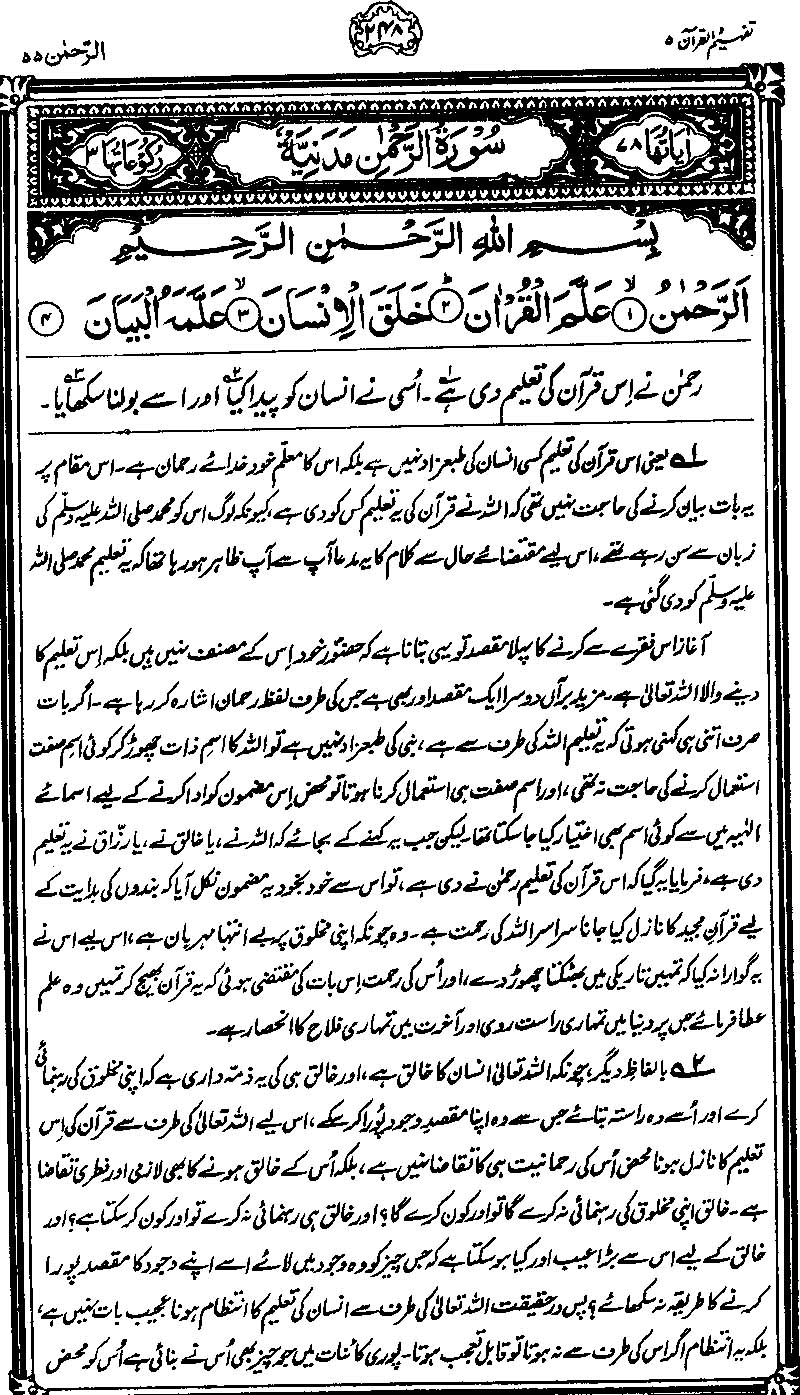 تفہیم القرآن ۵
۲۴۸
الرحمٰن ۵۵
اٰيَاتُهَا ۷۸
سُوْرَةُ الرَّحْمٰنِ مَدَنِيَّةٌ
رُكُوْعَاتُهَا ۳
بِسْمِ اللهِ الرَّحْمٰنِ الرَّحِيْمِ
اَلرَّحْمٰنُ ۙ۱ عَلَّمَ الْقُرْاٰنَ ؕ۲ خَلَقَ الْاِنْسَانَ ۙ۳ عَلَّمَهُ الْبَيَانَ ۴
رحمٰن نے اِس قرآن کی تعلیم دی ہے۱۔ اُسی نے انسان کو پیدا کیا۲ اور اسے بولنا سکھایا۳۔
۱ یعنی اس قرآن کی تعلیم کسی انسان کی طبعزاد نہیں ہے بلکہ اس کا معلّم خود خدائے رحمان ہے۔ اس مقام پر
یہ بات بیان کرنے کی حاجت نہیں تھی کہ اللہ نے قرآن کی یہ تعلیم کس کو دی ہے، کیونکہ لوگ اس کو محمد صلی اللہ علیہ وسلّم کی
زبان سے سن رہے تھے، اس لیے مقتضائے حال سے کلام کا یہ مدعا آپ سے آپ ظاہر ہو رہا تھا کہ یہ تعلیم محمد صلی اللہ
علیہ وسلّم کو دی گئی ہے۔
آغاز اس فقرے سے کرنے کا پہلا مقصد تو یہی بتانا ہے کہ حضورؐ خود اِس کے مصنف نہیں ہیں بلکہ اِس تعلیم کا
دینے والا اللہ تعالیٰ ہے۔ مزید برآں دوسرا ایک مقصد اور بھی ہے جس کی طرف لفظ رحمان اشارہ کر رہا ہے۔ اگر بات
صرف اتنی ہی کہنی ہوتی کہ یہ تعلیم اللہ کی طرف سے ہے، نبی کی طبعزاد نہیں ہے تو اللہ کا اسمِ ذات چھوڑ کر کوئی اسمِ صفت
استعمال کرنے کی حاجت نہ تھی، اور اسم صفت ہی استعمال کرنا ہوتا تو محض اِس مضمون کو ادا کرنے کے لیے اسمائے
الٰہیہ میں سے کوئی اسم بھی اختیار کیا جا سکتا تھا۔ لیکن جب یہ کہنے کے بجائے کہ اللہ نے، یا خالق نے، یا رزّاق نے یہ تعلیم
دی ہے، فرمایا یہ گیا کہ اس قرآن کی تعلیم رحمٰن نے دی ہے، تو اس سے خود بخود یہ مضمون نکل آیا کہ بندوں کی ہدایت کے
لیے قرآنِ مجید کا نازل کیا جانا سراسر اللہ کی رحمت ہے۔ وہ چونکہ اپنی مخلوق پر بے انتہا مہربان ہے، اس لیے اس نے
یہ گوارا نہ کیا کہ تمہیں تاریکی میں بھٹکتا چھوڑ دے، اور اُس کی رحمت اِس بات کی مقتضی ہوئی کہ یہ قرآن بھیج کر تمہیں وہ علم
عطا فرمائے جس پر دنیا میں تمہاری راست روی اور آخرت میں تمہاری فلاح کا انحصار ہے۔
۲ بالفاظِ دیگر، چونکہ اللہ تعالیٰ انسان کا خالق ہے، اور خالق ہی کی یہ ذمہ داری ہے کہ اپنی مخلوق کی رہنمائی
کرے اور اُسے وہ راستہ بتائے جس سے وہ اپنا مقصدِ وجود پُورا کر سکے، اس لیے اللہ تعالیٰ کی طرف سے قرآن کی اِس
تعلیم کا نازل ہونا محض اُس کی رحمانیت ہی کا تقاضا نہیں ہے، بلکہ اُس کے خالق ہونے کا بھی لازمی اور فطری تقاضا
ہے۔ خالق اپنی مخلوق کی رہنمائی نہ کرے گا تو اور کون کرے گا؟ اور خالق ہی رہنمائی نہ کرے تو اور کون کر سکتا ہے؟ اور
خالق کے لیے اس سے بڑا عیب اور کیا ہو سکتا ہے کہ جس چیز کو وہ وجود میں لائے اسے اپنے وجود کا مقصد پورا
کرنے کا طریقہ نہ سکھائے؟ پس درحقیقت اللہ تعالیٰ کی طرف سے انسان کی تعلیم کا انتظام ہونا عجیب بات نہیں ہے،
بلکہ یہ انتظام اگر اس کی طرف سے نہ ہوتا تو قابلِ تعجب ہوتا۔ پوری کائنات میں جو چیز بھی اُس نے بنائی ہے اُس کو محض